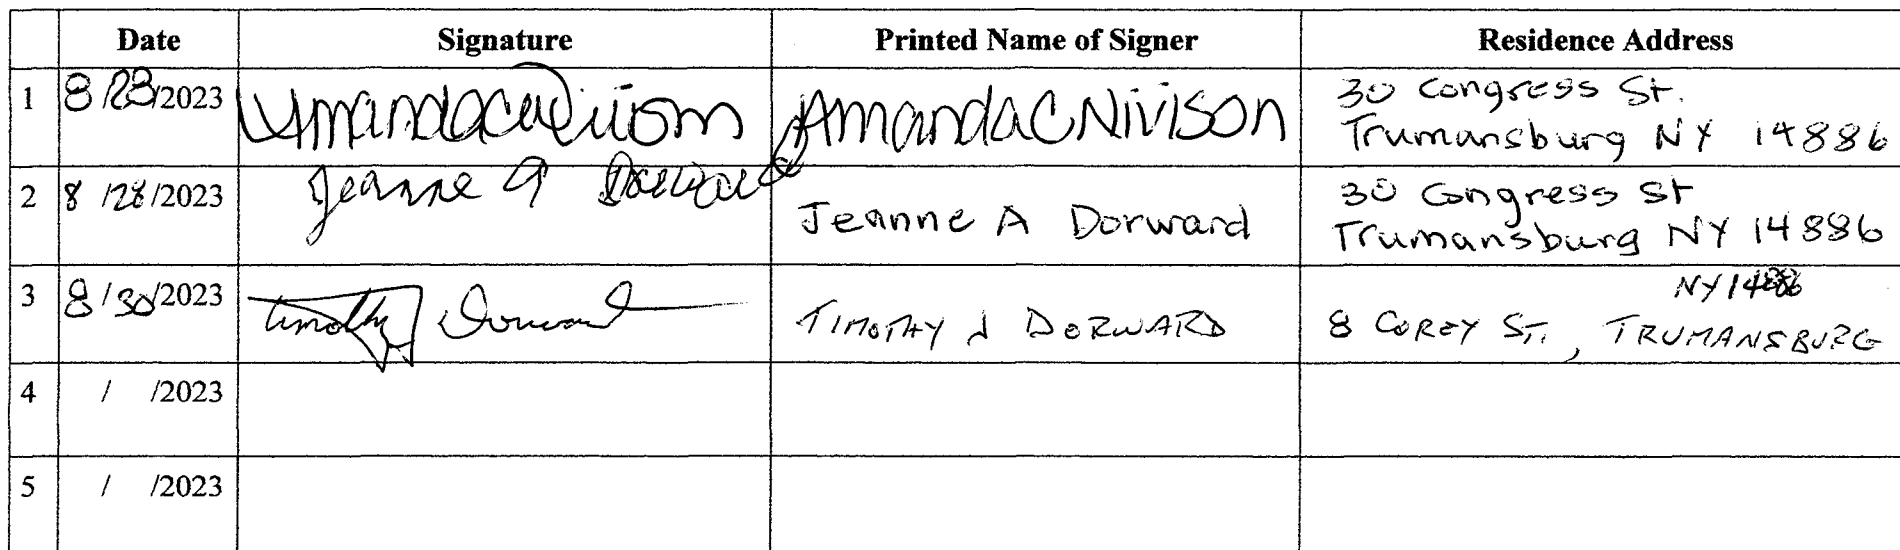 Date Signature Printed Name of Signer Residence Address
1 8/28/2023 Amanda C Nivison Amanda C Nivison 30 Congress St.
Trumansburg NY 14886
2 8/28/2023 Jeanne A Dorward Jeanne A Dorward 30 Congress St
Trumansburg NY 14886
3 8/30/2023 Timothy J Dorward TIMOTHY J DORWARD 8 COREY ST., TRUMANSBURG
NY 14886
4 / /2023
5 / /2023